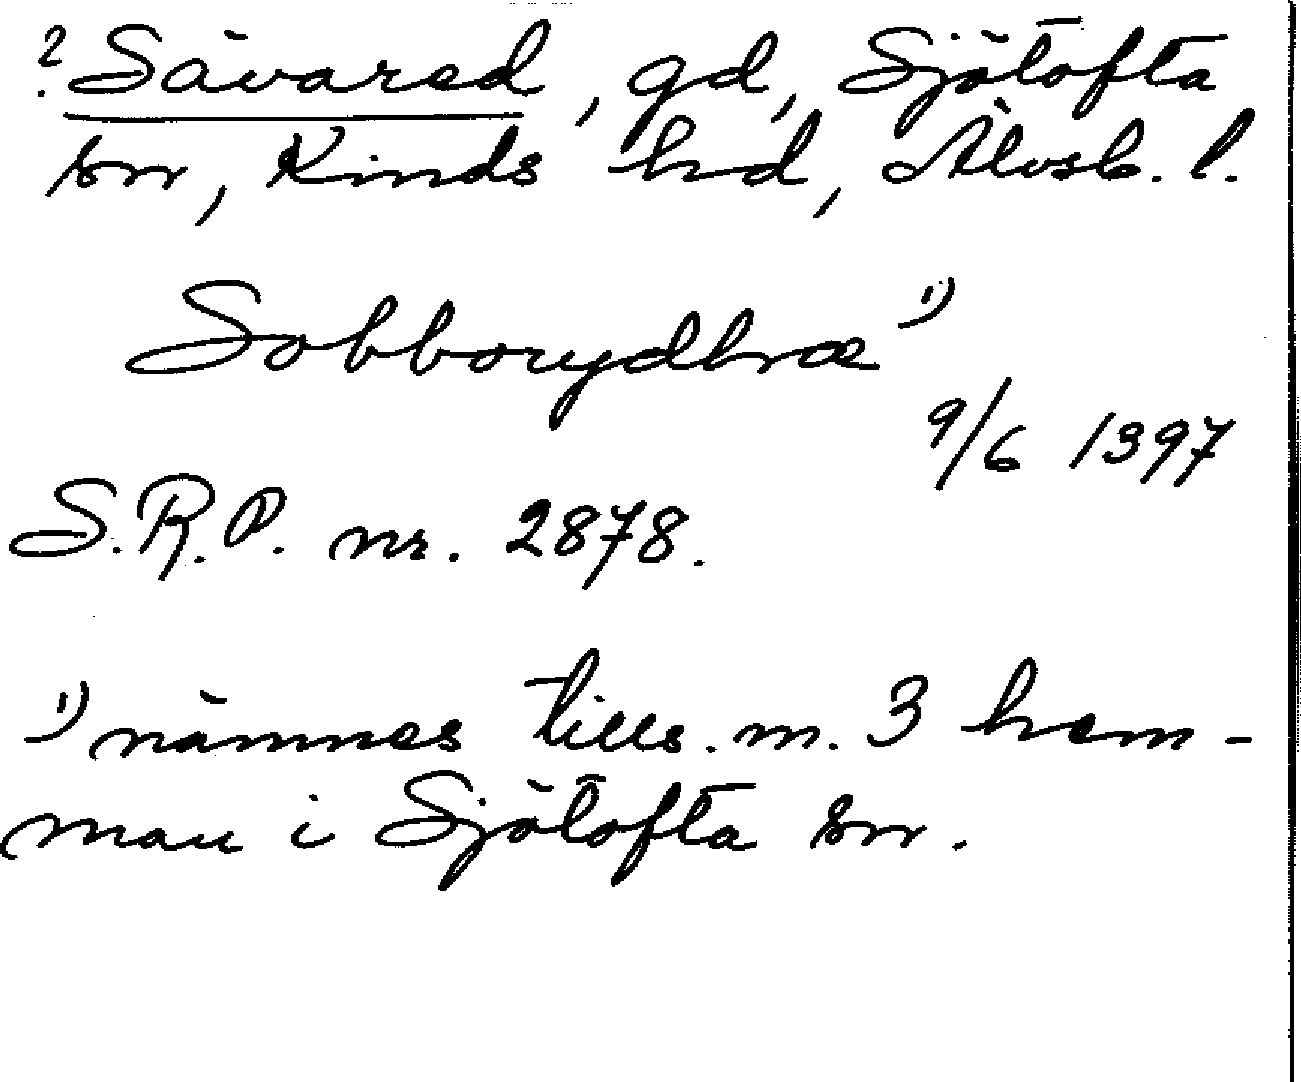 ? Sävared, gd, Sjötofta
sn, Kinds hd, Älvsb. l.
Sobborydhræ 1)
9/6 1397
S.R.P. nr. 2878.
1) nämnes tills. m. 3 hem-
man i Sjötofta sn.